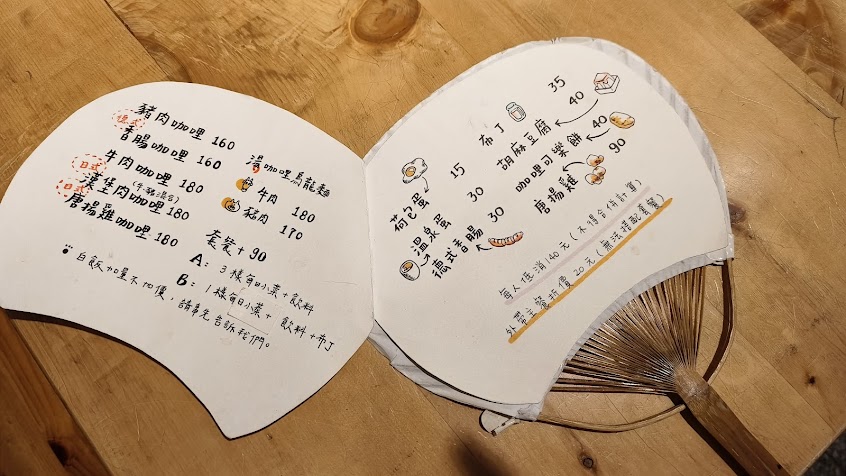 豬肉咖哩 160
德式
香腸咖哩 160
日式
牛肉咖哩 180
日式
漢堡肉咖哩 180
(牛豬混合)
唐揚雞咖哩 180
湯咖哩烏龍麵
牛肉 180
豬肉 170
套餐 + 90
A: 3樣每日小菜 + 飲料
B: 1樣每日小菜 + 飲料 + 布丁
白飯加量不加價,請事先告訴我們。
布丁 35
胡麻豆腐 40
咖哩可樂餅 40
唐揚雞 90
荷包蛋 15
溫泉蛋 30
德式香腸 30
每人低消140元(不得合併計算)
外帶主餐折價20元(無法搭配套餐)